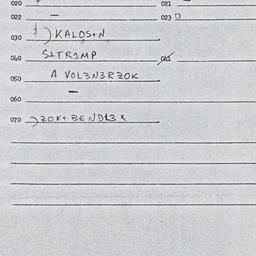 020 021
022 — 023
030 1) KALOS+N
040 S+TR1MP 041
050 A VOL3N3RZOK
060 —
070 ZOK+ BENDL3X